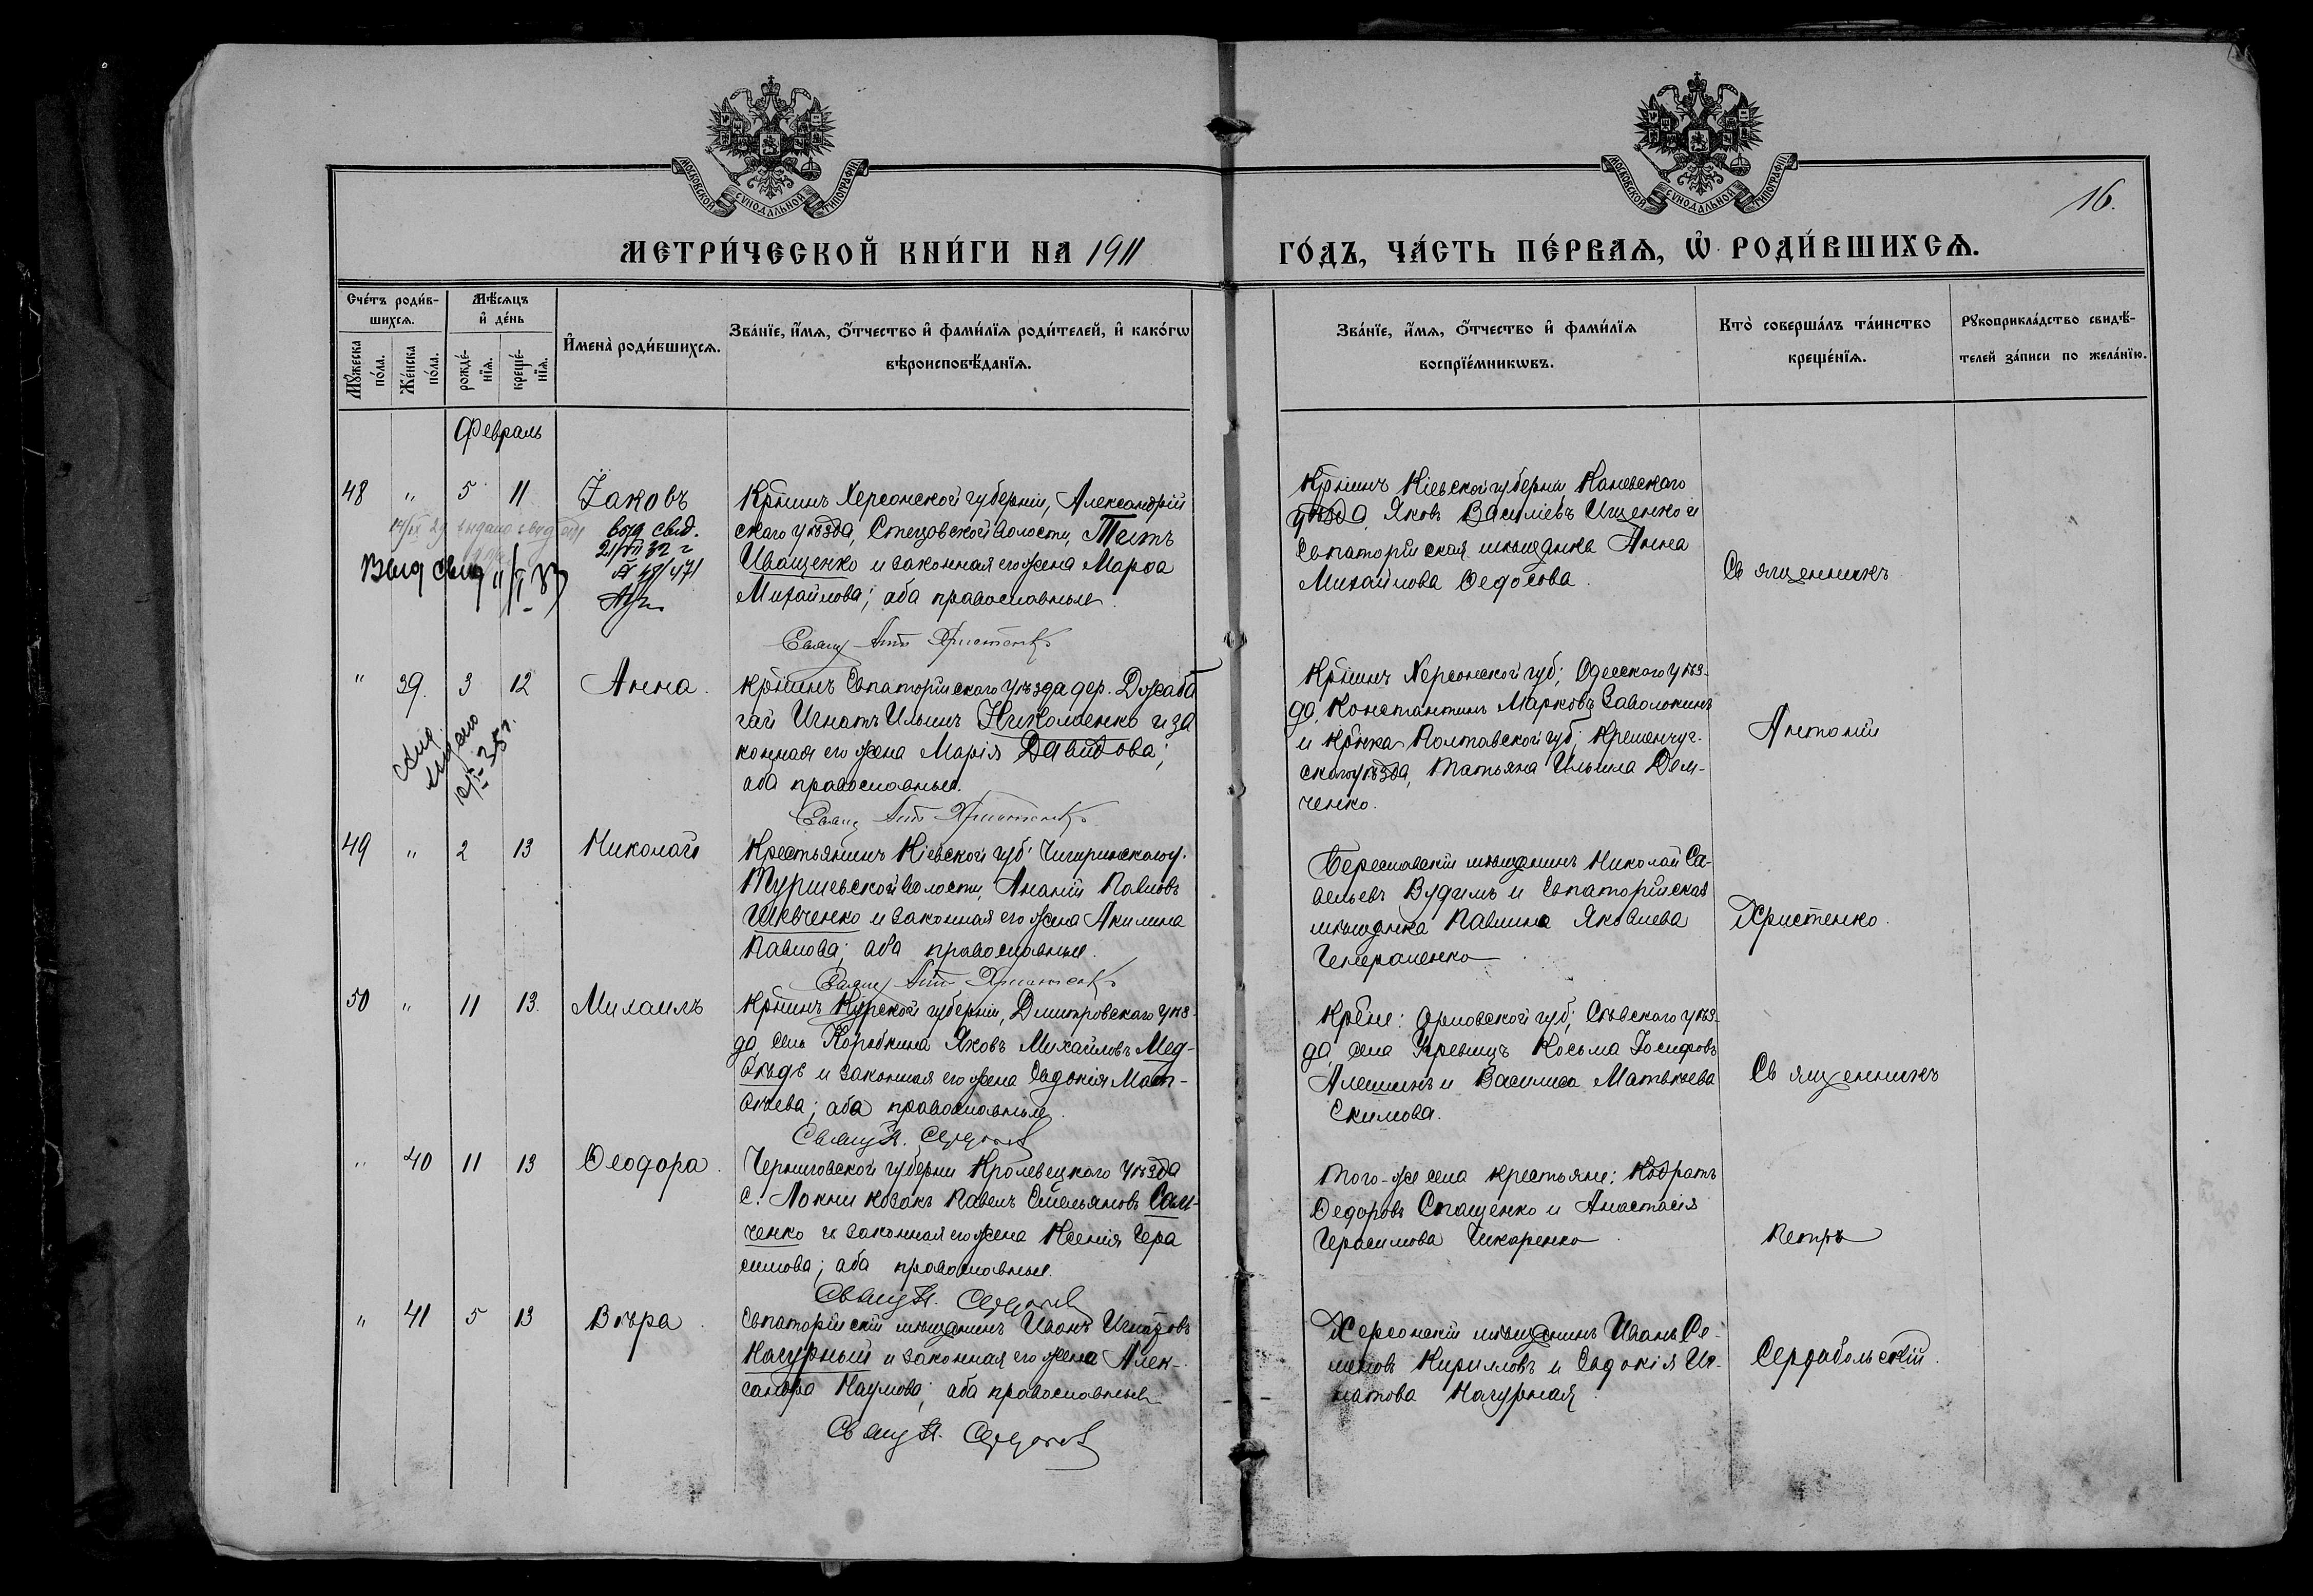 МОСКОВСКОЙ СѴНОДАЛЬНОЙ ТИПОГРАФІИ
МОСКОВСКОЙ СѴНОДАЛЬНОЙ ТИПОГРАФІИ
16.
МЕТРИ́ЧЕСКОЙ КНИ́ГИ НА 1911
ГО́ДЪ, ЧА́СТЬ ПЕ́РВАѦ, Ѡ҆ РОДИ́ВШИХСѦ.
Сче́тъ роди́в-
шихсѧ.
Мѣ́сѧцъ
и҆ де́нь
Мꙋ́жеска
по́ла.
Же́нска
по́ла.
рожде́-
нїѧ.
креще́-
нїѧ.
И҆мена̀ роди́вшихсѧ.
Зва́нїе, и҆́мѧ, ѻ҆́тчество и҆ фами́лїѧ роди́телей, и҆ како́гѡ
вѣроисповѣ́данїѧ.
Зва́нїе, и҆́мѧ, ѻ҆́тчество и҆ фами́лїѧ
воспрїе́мникѡвъ.
Кто̀ соверша́лъ та́инство
креще́нїѧ.
Рꙋкоприкла́дство свидѣ́-
телей за́писи по жела́нїю.
Февраль
48 " 5 11 Іаковъ
выд. свид.
21/VII 32 г
Выд свид
Крнинъ Херсонской губерніи, Александрій
скаго уѣзда, Стецовской волости, Титъ
Иващенко и законная его жена Марѳа
Михайлова; оба православные.
Свящ Ант Христенко
Крнинъ Кіевской губерніи Каневскаго
уѣзда, Яковъ Василіевъ Ищенко и
Евпаторійская мѣщанка Анна
Михайлова Ѳедосова.
Священникъ
" 39. 3 12 Анна.
свид
выдано
38 г.
Крнинъ Евпаторійскаго уѣзда дер. Джаба
гай Игнатъ Ильинъ Николаенко и за
конная его жена Марія Давидова;
оба православные.
Свящ Ант Христенко
Крнинъ Херсонской губ; Одесскаго уѣз-
да, Константинъ Марковъ Заволокинъ
и крнка Полтавской губ; Кременчуг-
скаго уѣзда, Татьяна Ильина Дем-
ченко.
Антоній
49 " 2 13 Николай
Крестьянинъ Кіевской губ: Чигиринскаго у.
Туріевской волости, Ананій Павловъ
Шевченко и законная его жена Акилина
Павлова; оба православные.
Свящ Ант Христенко
Бериславскій мѣщанинъ Николай Са-
вельевъ Вудимъ и Евпаторійская
мѣщанка Павлина Яковлева
Христенко.
50 " 11 13. Михаилъ
Крнинъ Курской губерніи, Дмитровскаго уѣз-
да, села Коробкина Яковъ Михайловъ Мед-
вѣдь и законная его жена Евдокія Мат-
вѣева; оба православные.
Свящ П.
Крне: Орловской губ; Сѣвскаго уѣз-
да, села Косьма Іосифовъ
Алешинъ и Василиса Матвѣева
Екимова.
Священникъ
" 40 11 13 Ѳеодора.
Черниговской губерніи Кролевецкаго уѣзда
с. Локни козакъ Павелъ Емельяновъ Сам-
ченко и законная его жена Ксенія Гера
симова; оба православные.
Свящ П.
Того-же села крестьяне: Кодратъ
Ѳедоровъ Спащенко и Анастасія
Герасимова Шкаренко.
Петръ
" 41 5 13 Вѣра.
Евпаторійскій мѣщанинъ Иванъ Игнатовъ
Нагурный и законная его жена Алек-
сандра Наумова; оба православные.
Свящ П.
Херсонскій мѣщанинъ Иванъ Се-
меновъ Кирилловъ и Евдокія Иг-
натова Нагурная.
Сердобольскій.